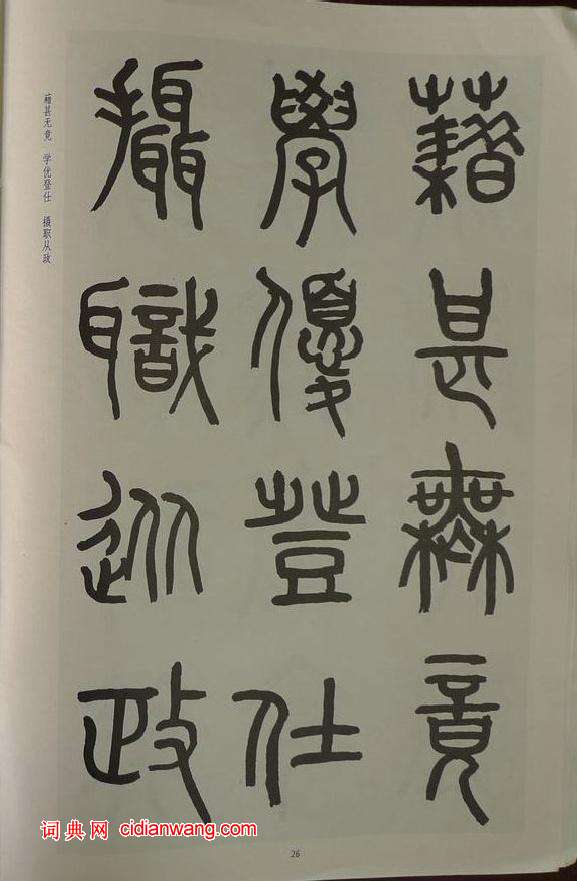 藉甚無竟
學優登仕
攝職從政
藉甚无竟 学优登仕 摄职从政
26
词典网 cidianwang.com